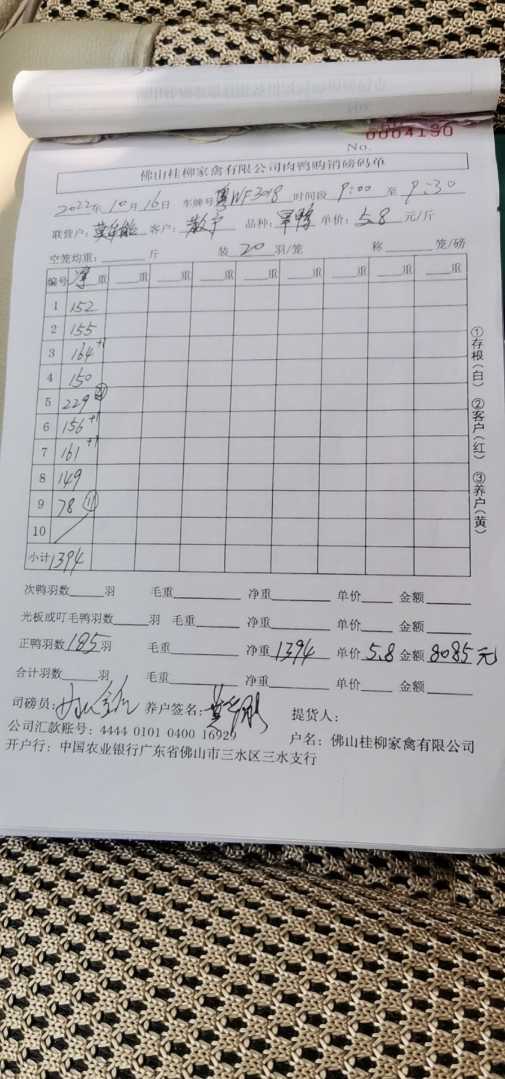 0004190
No.
佛山桂柳家禽有限公司肉鸭购销磅码单
2022年 10月 16日 车牌号 粤WF3018 时间段 9:00 至 9:30
联营户: 客户: 散户 品种: 单价: 5.8 元/斤
空笼均重: 斤 装 20 羽/笼 称 笼/磅
编号 净重 重 重 重 重 重 重 重 重
1 152
2 155
3 164 +1
4 150
5 229
6 156 +1
7 161 +1
8 149
9 78 11
10
小计 1394
次鸭羽数 羽 毛重 净重 单价 金额
光板或叮毛鸭羽数 羽 毛重 净重 单价 金额
正鸭羽数 185 羽 毛重 净重 1394 单价 5.8 金额 8085元
合计羽数 羽 毛重 净重 单价 金额
司磅员: 养户签名: 提货人:
公司汇款账号: 4444 0101 0400 16929 户名: 佛山桂柳家禽有限公司
开户行: 中国农业银行广东省佛山市三水区三水支行
①存根(白) ②客户(红) ③养户(黄)